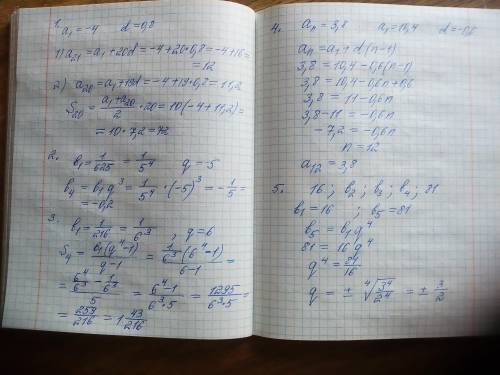 1. a₁ = -4   d = 0,8
1) a₂₁ = a₁ + 20d = -4 + 20·0,8 = -4 + 16 =
= 12
2) a₂₀ = a₁ + 19d = -4 + 19·0,8 = 11,2
S₂₀ = (a₁ + a₂₀)/2 · 20 = 10(-4 + 11,2) =
= 10·7,2 = 72
2. b₁ = 1/625 = 1/5⁴   q = -5
b₄ = b₁q³ = 1/5⁴ · (-5)³ = -1/5 =
= -0,2
3. b₁ = 1/216 = 1/6³ , q = 6
S₄ = b₁(q⁴-1)/(q-1) = 1/6³(6⁴-1)/(6-1) =
= (6⁴/6³ - 1/6³)/5 = (6⁴-1)/(6³·5) = 1295/(6³·5) =
= 259/216 = 1 43/216
4. aₙ = 3,8   a₁ = 10,4   d = -0,6
aₙ = a₁ + d(n-1)
3,8 = 10,4 - 0,6(n-1)
3,8 = 10,4 - 0,6n + 0,6
3,8 = 11 - 0,6n
3,8 - 11 = -0,6n
-7,2 = -0,6n
n = 12
a₁₂ = 3,8
5. 16 ; b₂ ; b₃ ; b₄ ; 81
b₁ = 16 ; b₅ = 81
b₅ = b₁q⁴
81 = 16q⁴
q⁴ = 81/16
q = ± ⁴√(3⁴/2⁴) = ± 3/2